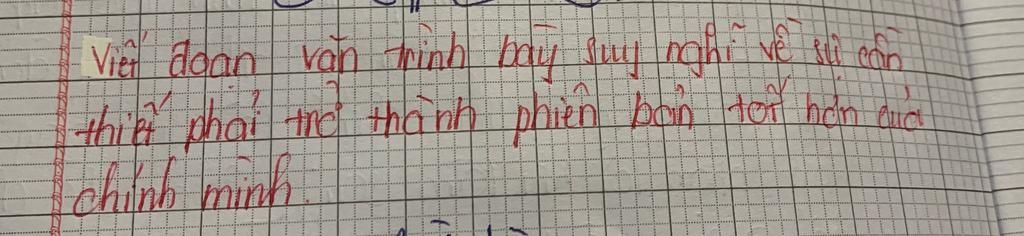 Viết đoạn văn trình bày suy nghĩ về sự cần
thiết phải trở thành phiên bản tốt hơn của
chính mình.